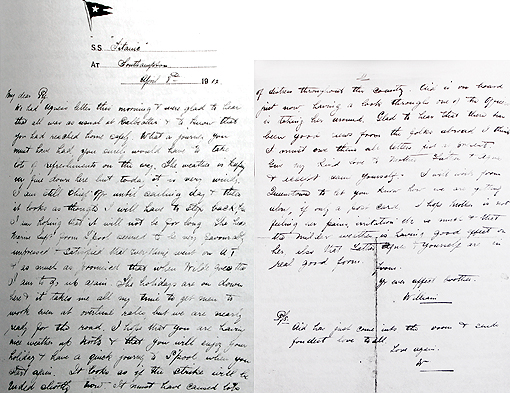 S.S. "Titanic"
AT Southampton
April 8th 1912
My dear
We had Agnes letter this morning & were glad to hear
that all was as usual at & to know that
you had reached home safely. What a journey you
must have had, you surely would have to take
lots of refreshments on the way. The weather is
fine down here but today it is very windy.
I am still Chief Off. until sailing day & then
it looks as though I will have to step back, so
I am hoping that it will not be for long. The
from L'pool seemed to be very favourably
impressed & satisfied that everything went on A1
& as much as promised that when Wilde goes
I am to go up again. The holidays are on down
here & it takes me all my time to get men to
work even at overtime rates, but we are nearly
ready for the road. I hope that you are having
nice weather up North & that you will enjoy your
holiday & have a quick journey to L'pool when you
start again. It looks as if the strike will be
ended shortly now. It must have caused lots
of throughout the country. Aid is on board
just now having a look through, one of the
is taking her around. Glad to hear that there has
been good news from the folks abroad, I think
I must owe them all letters just at present.
Give my kind love to Mother
& accept same yourself. I will write from
Queenstown to let you know how we are getting
along, if only a post card. I hope Mother is not
feeling her pains irritation etc so much & that
the milder weather is having good effect on
her, also that & yourself are in
real good form.
From
Yr ever affect brother
William
P/s.
Aid has just come into the room & sends
fondest love to all.
Love again.
W